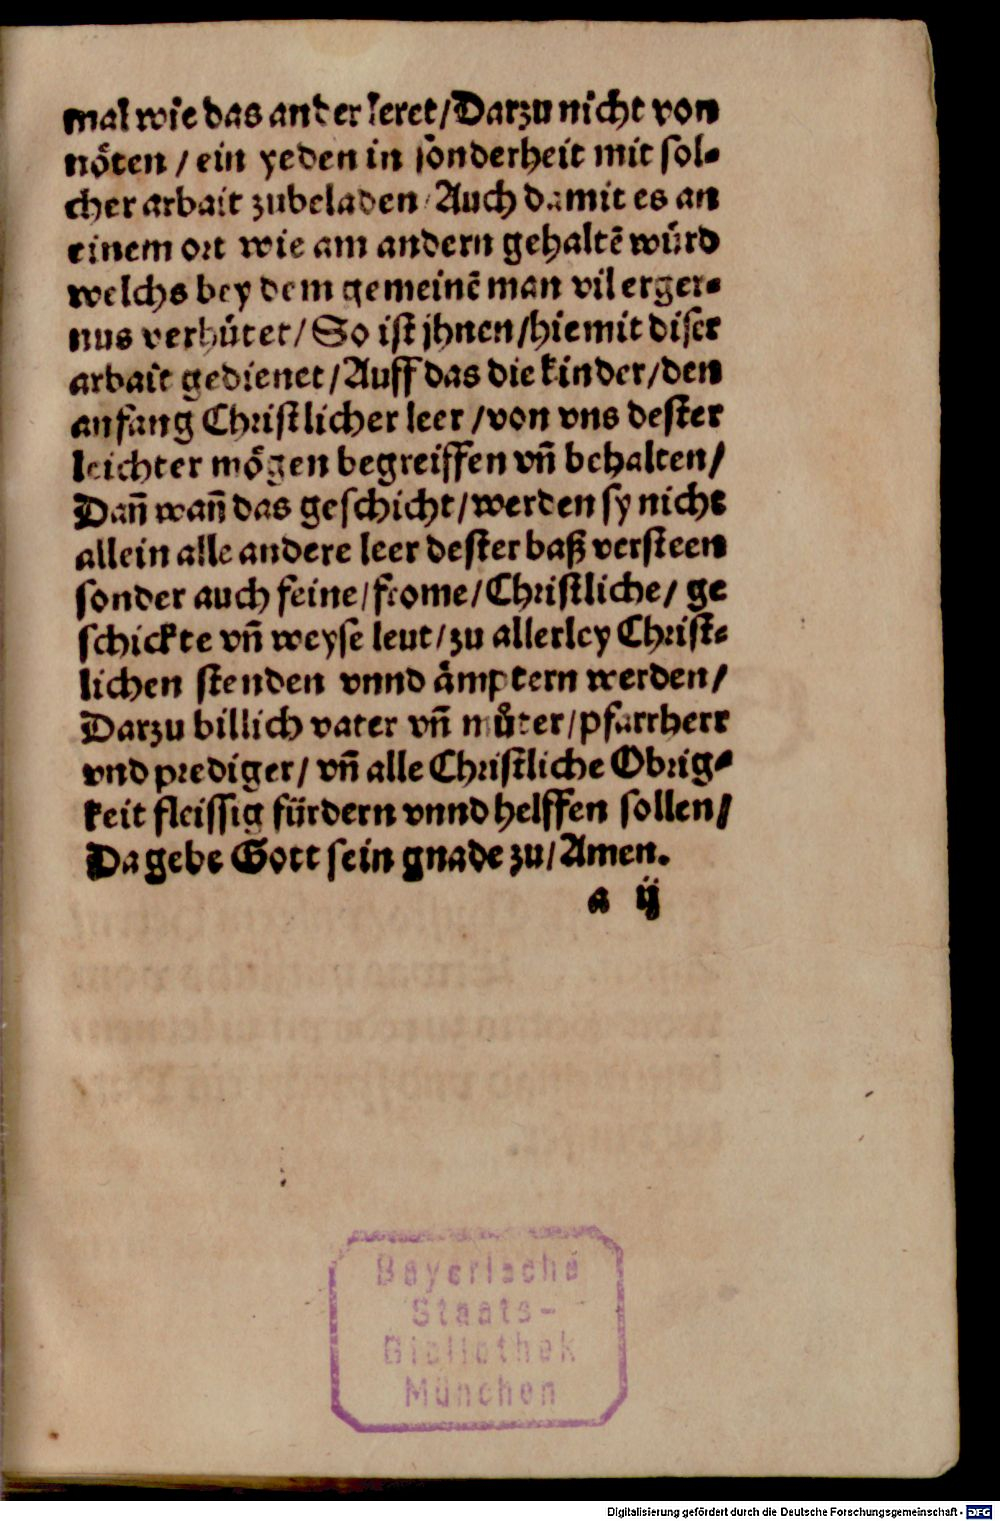 mal wie das ander leret/Darzu nicht von
nöten/ein yeden in sonderheit mit sol-
cher arbait zubeladen/Auch damit es an
einem ort wie am andern gehaltē würd
welchs bey dem gemeinē man vil erger-
nus verhütet/So ist jhnen/hiemit diser
arbait gedienet/Auff das die kinder/den
anfang Christlicher leer/von vns dester
leichter mögen begreiffen vn̄ behalten/
Dan̄ wan̄ das geschicht/werden sy nicht
allein alle andere leer dester baß versteen
sonder auch feine/frome/Christliche/ge
schickte vn̄ weyse leut/zu allerley Christ-
lichen stenden vnnd ämptern werden/
Darzu billich vater vn̄ můter/pfarrherr
vnd prediger/vn̄ alle Christliche Obrig-
keit fleissig fürdern vnnd helffen sollen/
Da gebe Gott sein gnade zu/Amen.
a ij
Bayerische
Staats-
Bibliothek
München
Digitalisierung gefördert durch die Deutsche Forschungsgemeinschaft - DFG